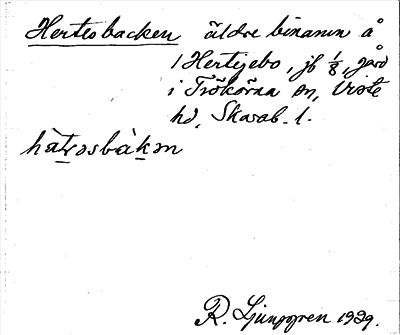 Hertesbacken äldre binamn å
1 Hertigebo, jb 1/8, gård
i Trökörna sn, Viste
hd, Skarab. l.
hàt̠əsbàk̠ən
R. Ljunggren 1929.